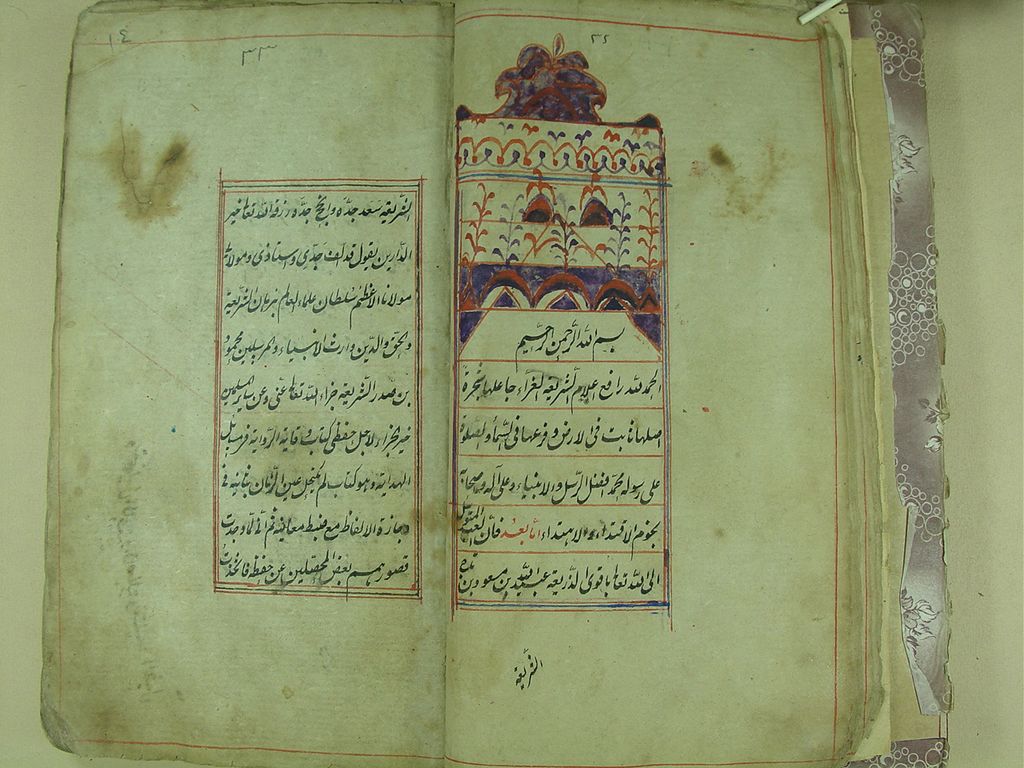 ٣٤
بسم الله الرحمن الرحيم
الحمد لله رافع اعلام الشريعة الغراء جاعلها شجرة
اصلها ثابت في الارض وفرعها في السماء والصلوة
على رسوله محمد افضل الرسل والانبياء وعلى آله وصحابه
نجوم الاقتداء والاهتداء اما بعد فان العبد المتوسل
الى الله تعالى باقوى الذريعة عبيد الله بن مسعود بن تاج
الشريعة
١٤
٣٣
الشريعة سعد جده وانجح جده رزقه الله تعالى خير
الدارين يقول قد الف جدي واستاذي ومولائي
مولانا الاعظم سلطان علماء العالم برهان الشريعة
والحق والدين وارث الانبياء والمرسلين محمود
بن صدر الشريعة جزاء الله تعالى عني وعن سائر المسلمين
خير الجزاء لاجل حفظي كتاب وقاية الرواية في مسائل
الهداية وهو كتاب لم يكتحل عين الزمان بثانيه في
وجازة الالفاظ مع ضبط معانيه ثم اني لما وجدت
قصور همم بعض المحصلين عن حفظه فاتخذت